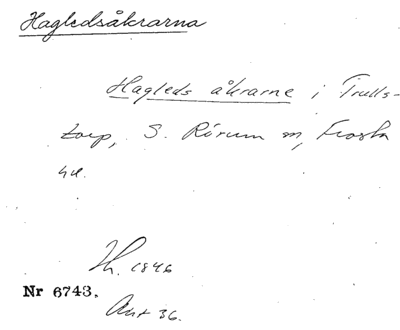 Hagledsåkrarna
Hagleds åkrarne i Trulls-
torp, S. Rörum sn, Frosta
hd.
Th. 1846
Nr 6743.
Avt 36.